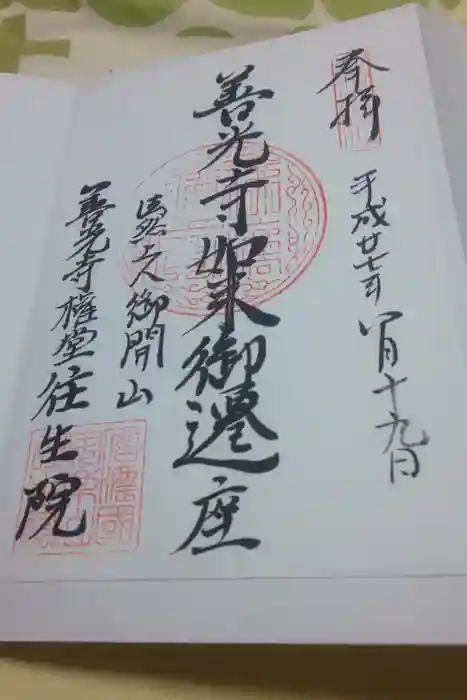 奉拝
平成廿七年八月十九日
善光寺如来御遷座
法然上人御開山
善光寺権堂往生院